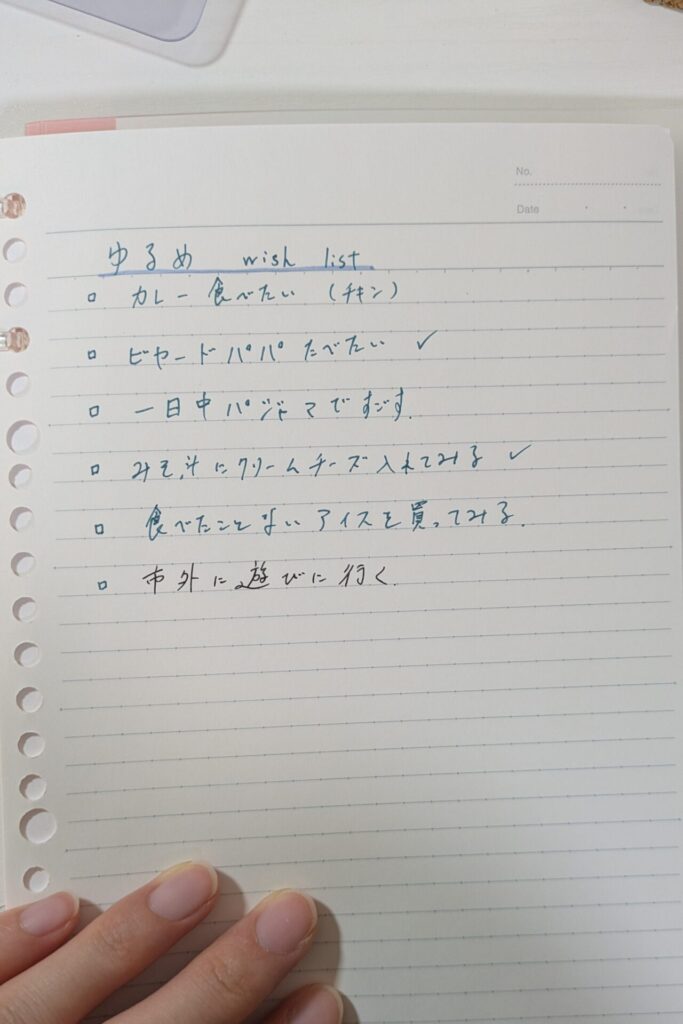 No.
Date
ゆるめ wish list
□ カレー食べたい (チキン)
□ ビヤードパパたべたい ✓
□ 一日中パジャマですごす.
□ みそ汁にクリームチーズ入れてみる ✓
□ 食べたことないアイスを買ってみる.
□ 市外に遊びに行く.